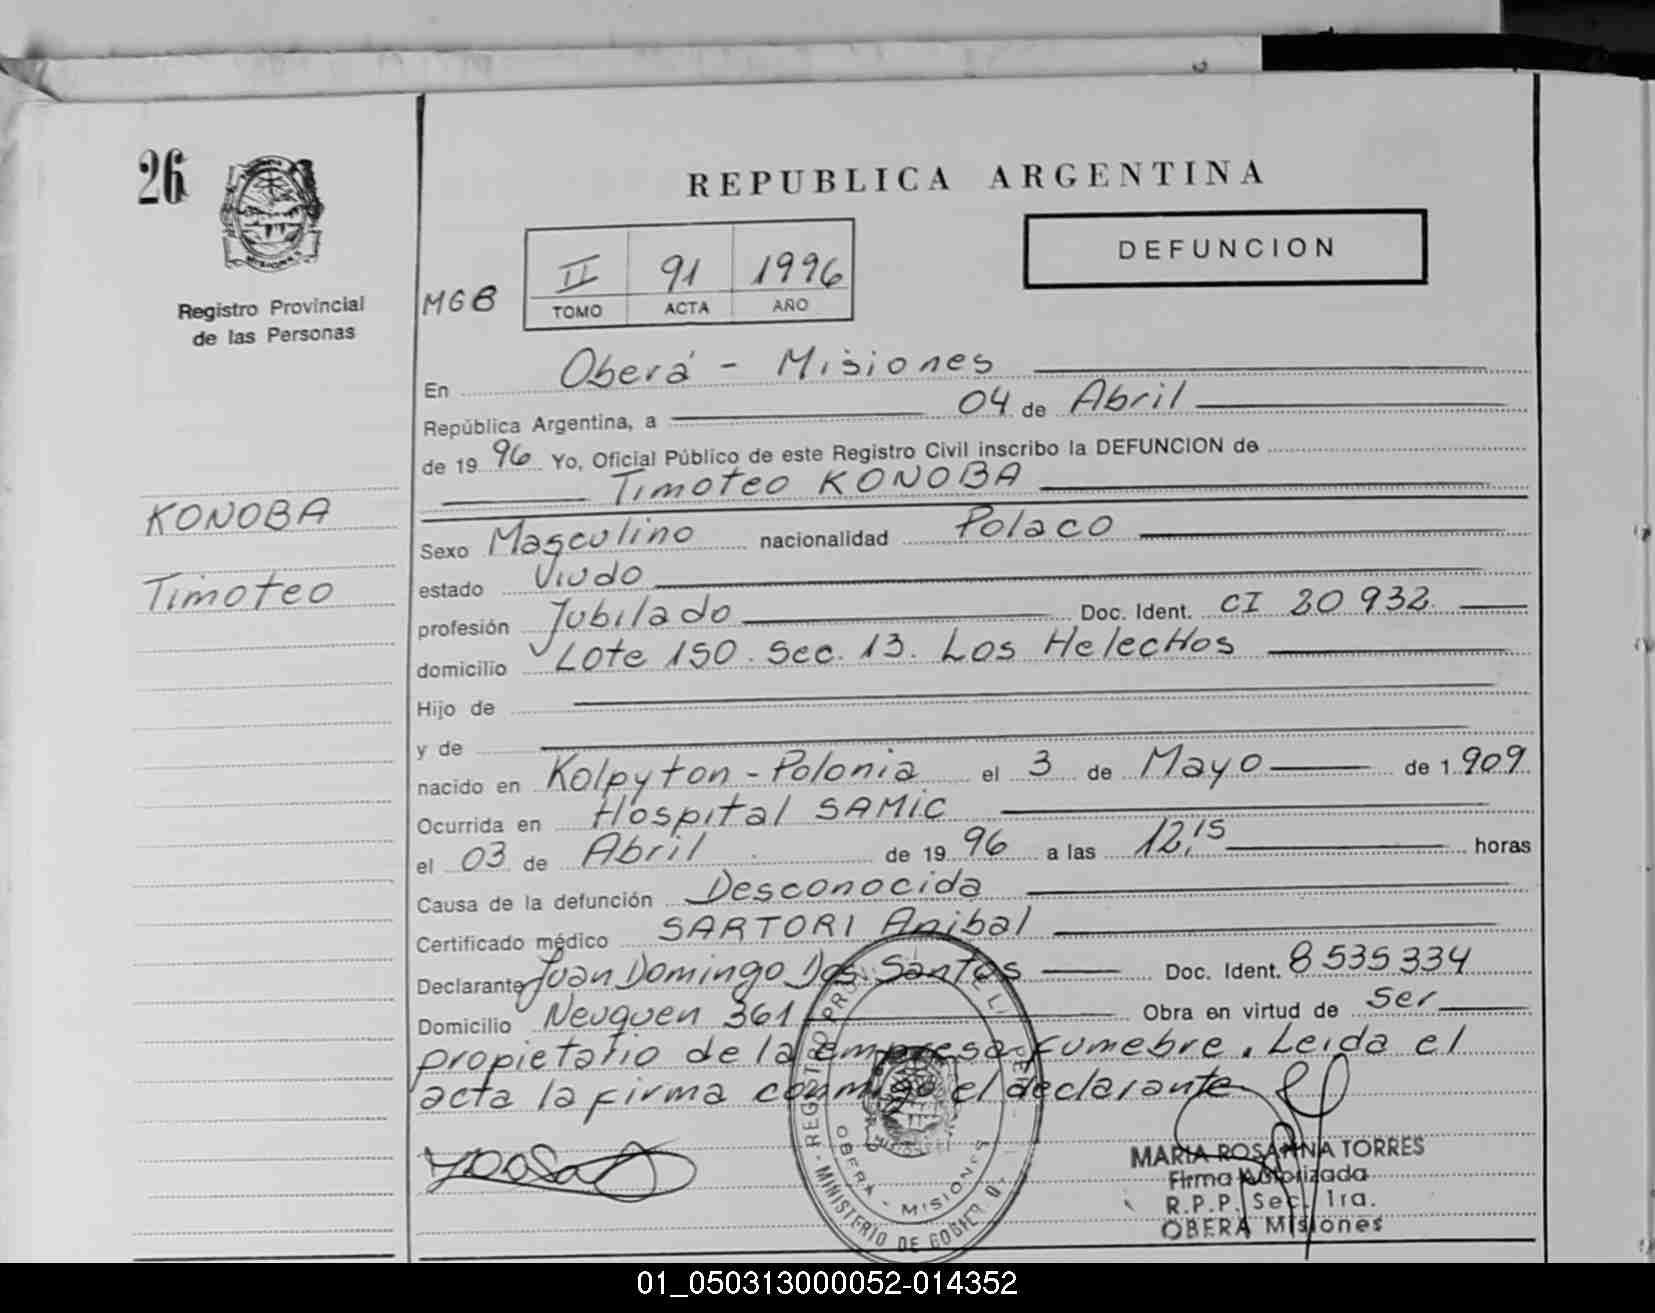 26
Registro Provincial
de las Personas
KONOBA
Timoteo
REPUBLICA ARGENTINA
DEFUNCION
MGB
II 91 1996
TOMO ACTA AÑO
En Oberá - Misiones
República Argentina, a 04 de Abril
de 1996 Yo, Oficial Público de este Registro Civil inscribo la DEFUNCION de
Timoteo KONOBA
Sexo Masculino nacionalidad Polaco
estado Viudo
profesión Jubilado Doc. Ident. CI 20 932
domicilio Lote 150. Sec. 13. Los Helechos
Hijo de
y de
nacido en Kolpyton - Polonia el 3 de Mayo de 1.909
Ocurrida en Hospital SAMIC
el 03 de Abril de 1996 a las 12,15 horas
Causa de la defunción Desconocida
Certificado médico SARTORI Anibal
Declarante Juan Domingo Dos Santos Doc. Ident. 8 535 334
Domicilio Neuquen 361 Obra en virtud de Ser
propietario de la empresa fumebre. Leida el
acta la firma conmigo el declarante
REGISTRO
OBERA - MISIONES
MINISTERIO DE GOBIERNO
MARIA ROSANNA TORRES
Firma Autorizada
R.P.P. Sec. 1ra.
OBERA Misiones
01_050313000052-014352